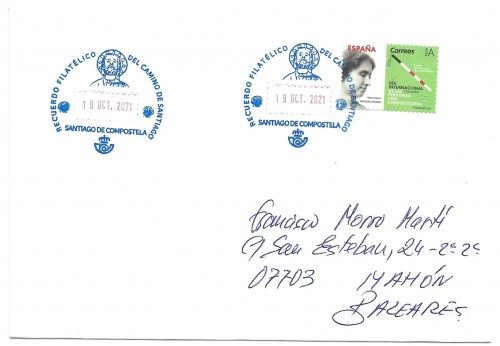 RECUERDO FILATÉLICO DEL CAMINO DE SANTIAGO
19 OCT. 2021
SANTIAGO DE COMPOSTELA
RECUERDO FILATÉLICO DEL CAMINO DE SANTIAGO
19 OCT. 2021
SANTIAGO DE COMPOSTELA
ESPAÑA
Correos
A
DÍA
INTERNACIONAL
DE LAS
PERSONAS
CON
SORDOCEGUERA
Francisco Morro Martí
C/ San Esteban, 24-2º-2ª
07703 MAHÓN
BALEARES